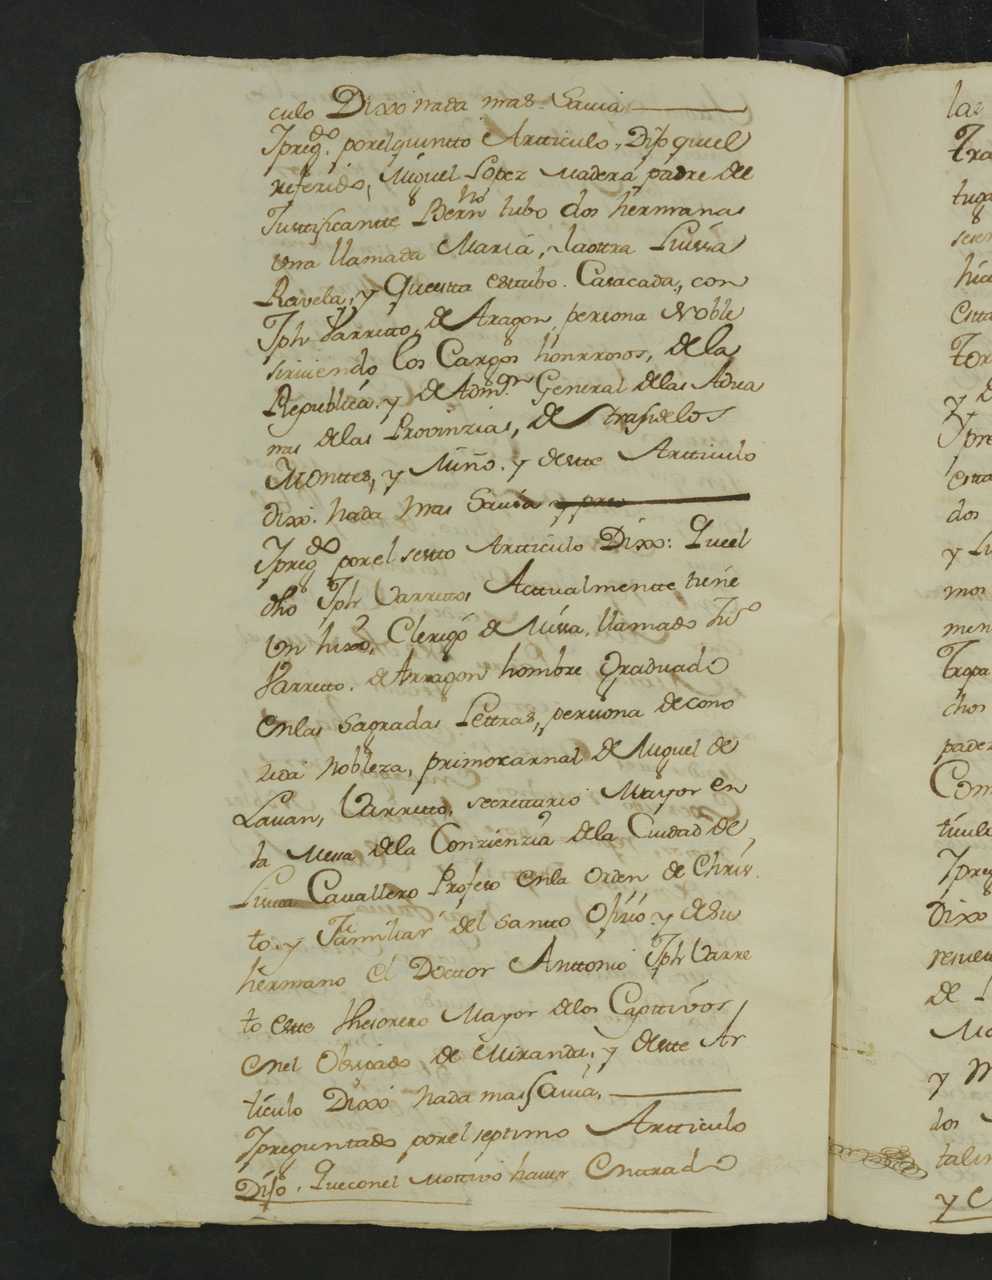 culo Dixo nada mas Savia
Ypreg.do porel quintto Artticulo, Dijo quiel
referido, Miguel Lopez Madera padre del
Justtificantte Bern.no tubo dos hermanas
vna llamada Maria, Laottra Luissa
Ravela, y Questta esttubo Casacada, con
Jph Varretto, de Aragon, persona Noble
sirviendo los Cargos honrrosos, de la
Republica. y de Adm.on General delas Adua
nas delas Provinzias, de Strasdelos
Monttes, y Miño. y destte Artticulo
dixo. nada mas Savia y preg
Ypreg.do porel sestto Artticulo Dixo: Queel
dho Jph Varretto, Acttualmentte tiene
Un hixo, Clerigo de Missa, llamado Ju.o
Varretto. de Arragon hombre Graduado
enlas Sagradas Lettras, persona decono
zida nobleza, primocarnal de Miguel de
Lavan, Varretto, secrettario Mayor en
la Messa dela Conzienzia dela Ciudad de
Lisvoa Cavallero Profeso enla Orden de Chris
to. y Familiar del Santto Ofizio y desu
hermano el Docttor Anttonio Jph Varre
to estte thesorero Mayor delos Capttivos,
enel Obispado, de Miranda, y destte Ar
ticulo Dixo nada mas Savia,
Ypreguntado porel septimo Artticulo
Dijo. Queconel Mottivo haver Enttrado
lar
tra
tuga
sesen
hia
Estta
tor
y d
Ypre
estta
dos
y Lu
mos
men
trapa
chos
padez
Com
ticulo
Ypreg
Dixo
resue
de L
Ma
y M
dos
talin
y C